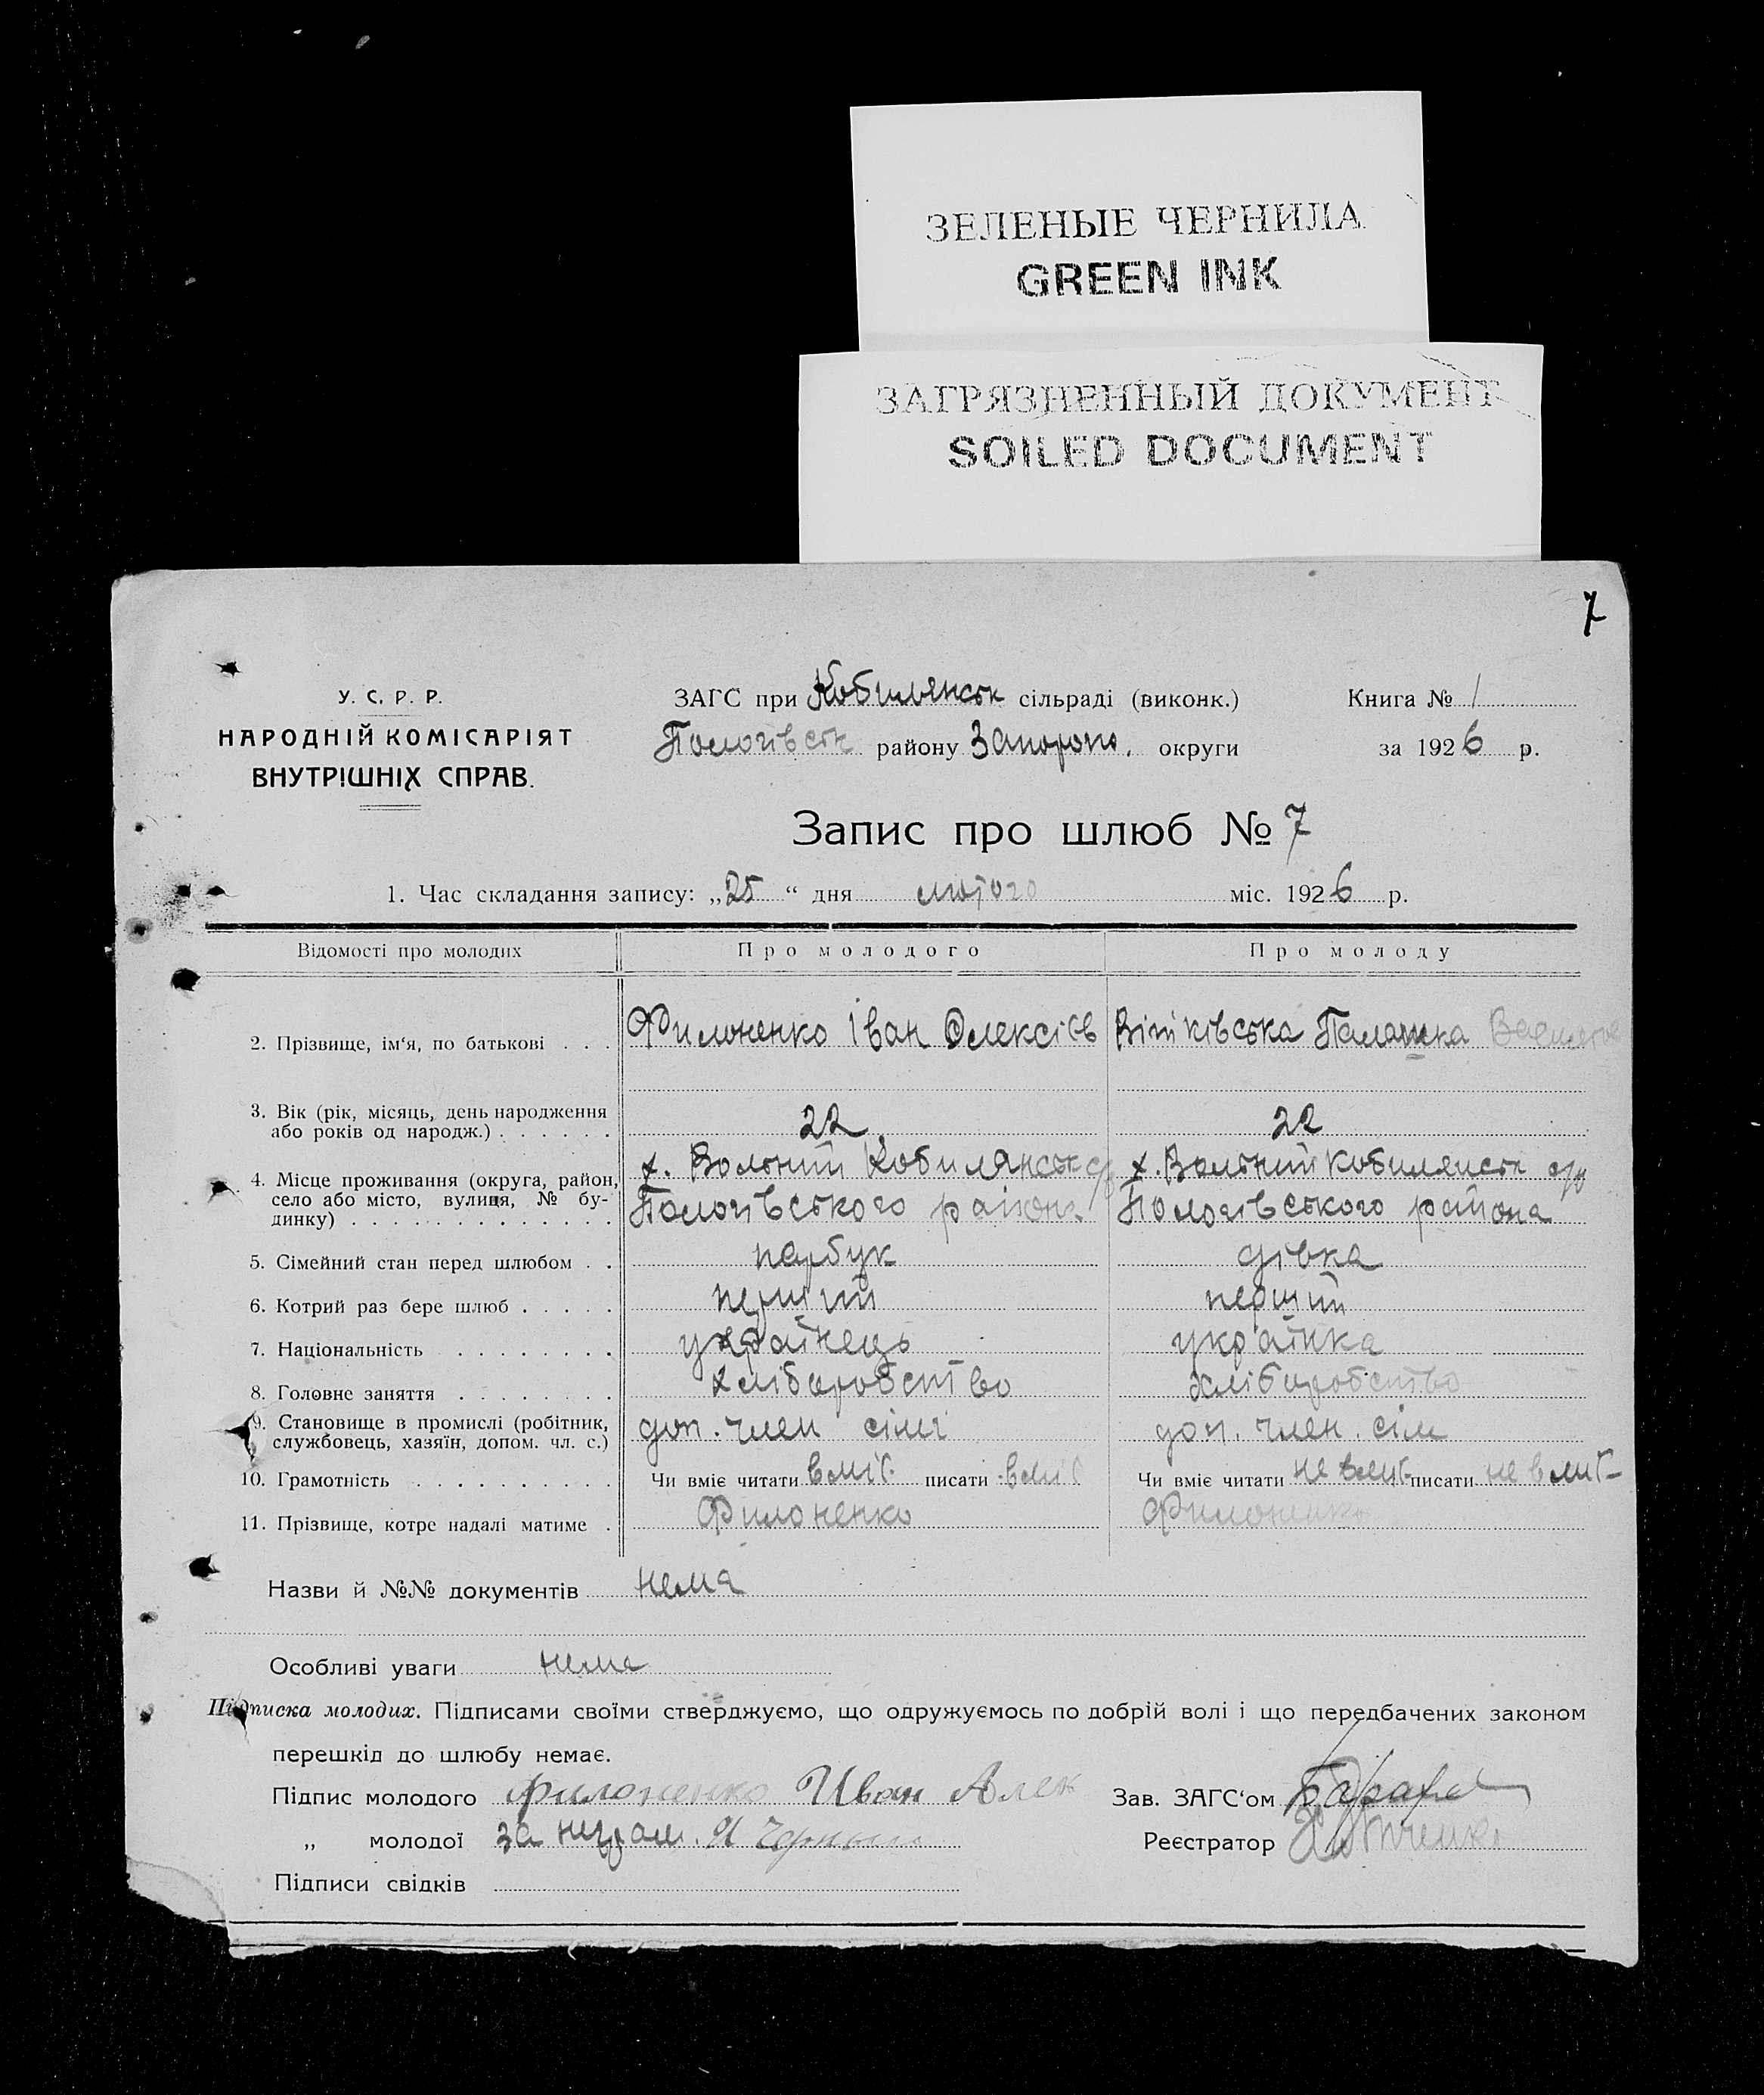 ЗЕЛЕНЫЕ ЧЕРНИЛА
GREEN INK
ЗАГРЯЗНЕННЫЙ ДОКУМЕНТ
SOILED DOCUMENT
7
У. С. Р. Р.
НАРОДНІЙ КОМІСАРІЯТ
ВНУТРІШНІХ СПРАВ.
ЗАГС при Кобилянськ сільраді (виконк.)
Пологівськ району Запорож. округи
Книга № 1
за 1926 р.
Запис про шлюб № 7
1. Час складання запису: „25“ дня лютого міс. 1926 р.
Відомості про молодих Про молодого Про молоду
2. Прізвище, ім‘я, по батькові . . . Филоненко Іван Олексієв Вітківська Палашка
3. Вік (рік, місяць, день народження
або років од народж.) . . . . . . 22 22
4. Місце проживання (округа, район, х. Вольний Кобилянськ с/р х. Вольний Кобилянськ с/р
село або місто, вулиця, № бу- Пологівського района Пологівського района
динку) . . . . . . . . . . . . .
5. Сімейний стан перед шлюбом . . парубок дівка
6. Котрий раз бере шлюб . . . . . перший перший
7. Національність . . . . . . . . українець українка
8. Головне заняття . . . . . . . . хліборобство хліборобство
9. Становище в промислі (робітник,
службовець, хазяїн, допом. чл. с.) доп. член сім'ї доп. член. сім
10. Грамотність . . . . . . . . . . Чи вміє читати вміє писати вміє Чи вміє читати не вміє писати не вміє
11. Прізвище, котре надалі матиме . Филоненко Филоненко
Назви й №№ документів нема
Особливі уваги нема
Підписка молодих. Підписами своїми стверджуємо, що одружуємось по добрій волі і що передбачених законом
перешкід до шлюбу немає.
Підпис молодого Филоненко Иван Алек Зав. ЗАГС‘ом
„ молодої за неграм. Реєстратор
Підписи свідків